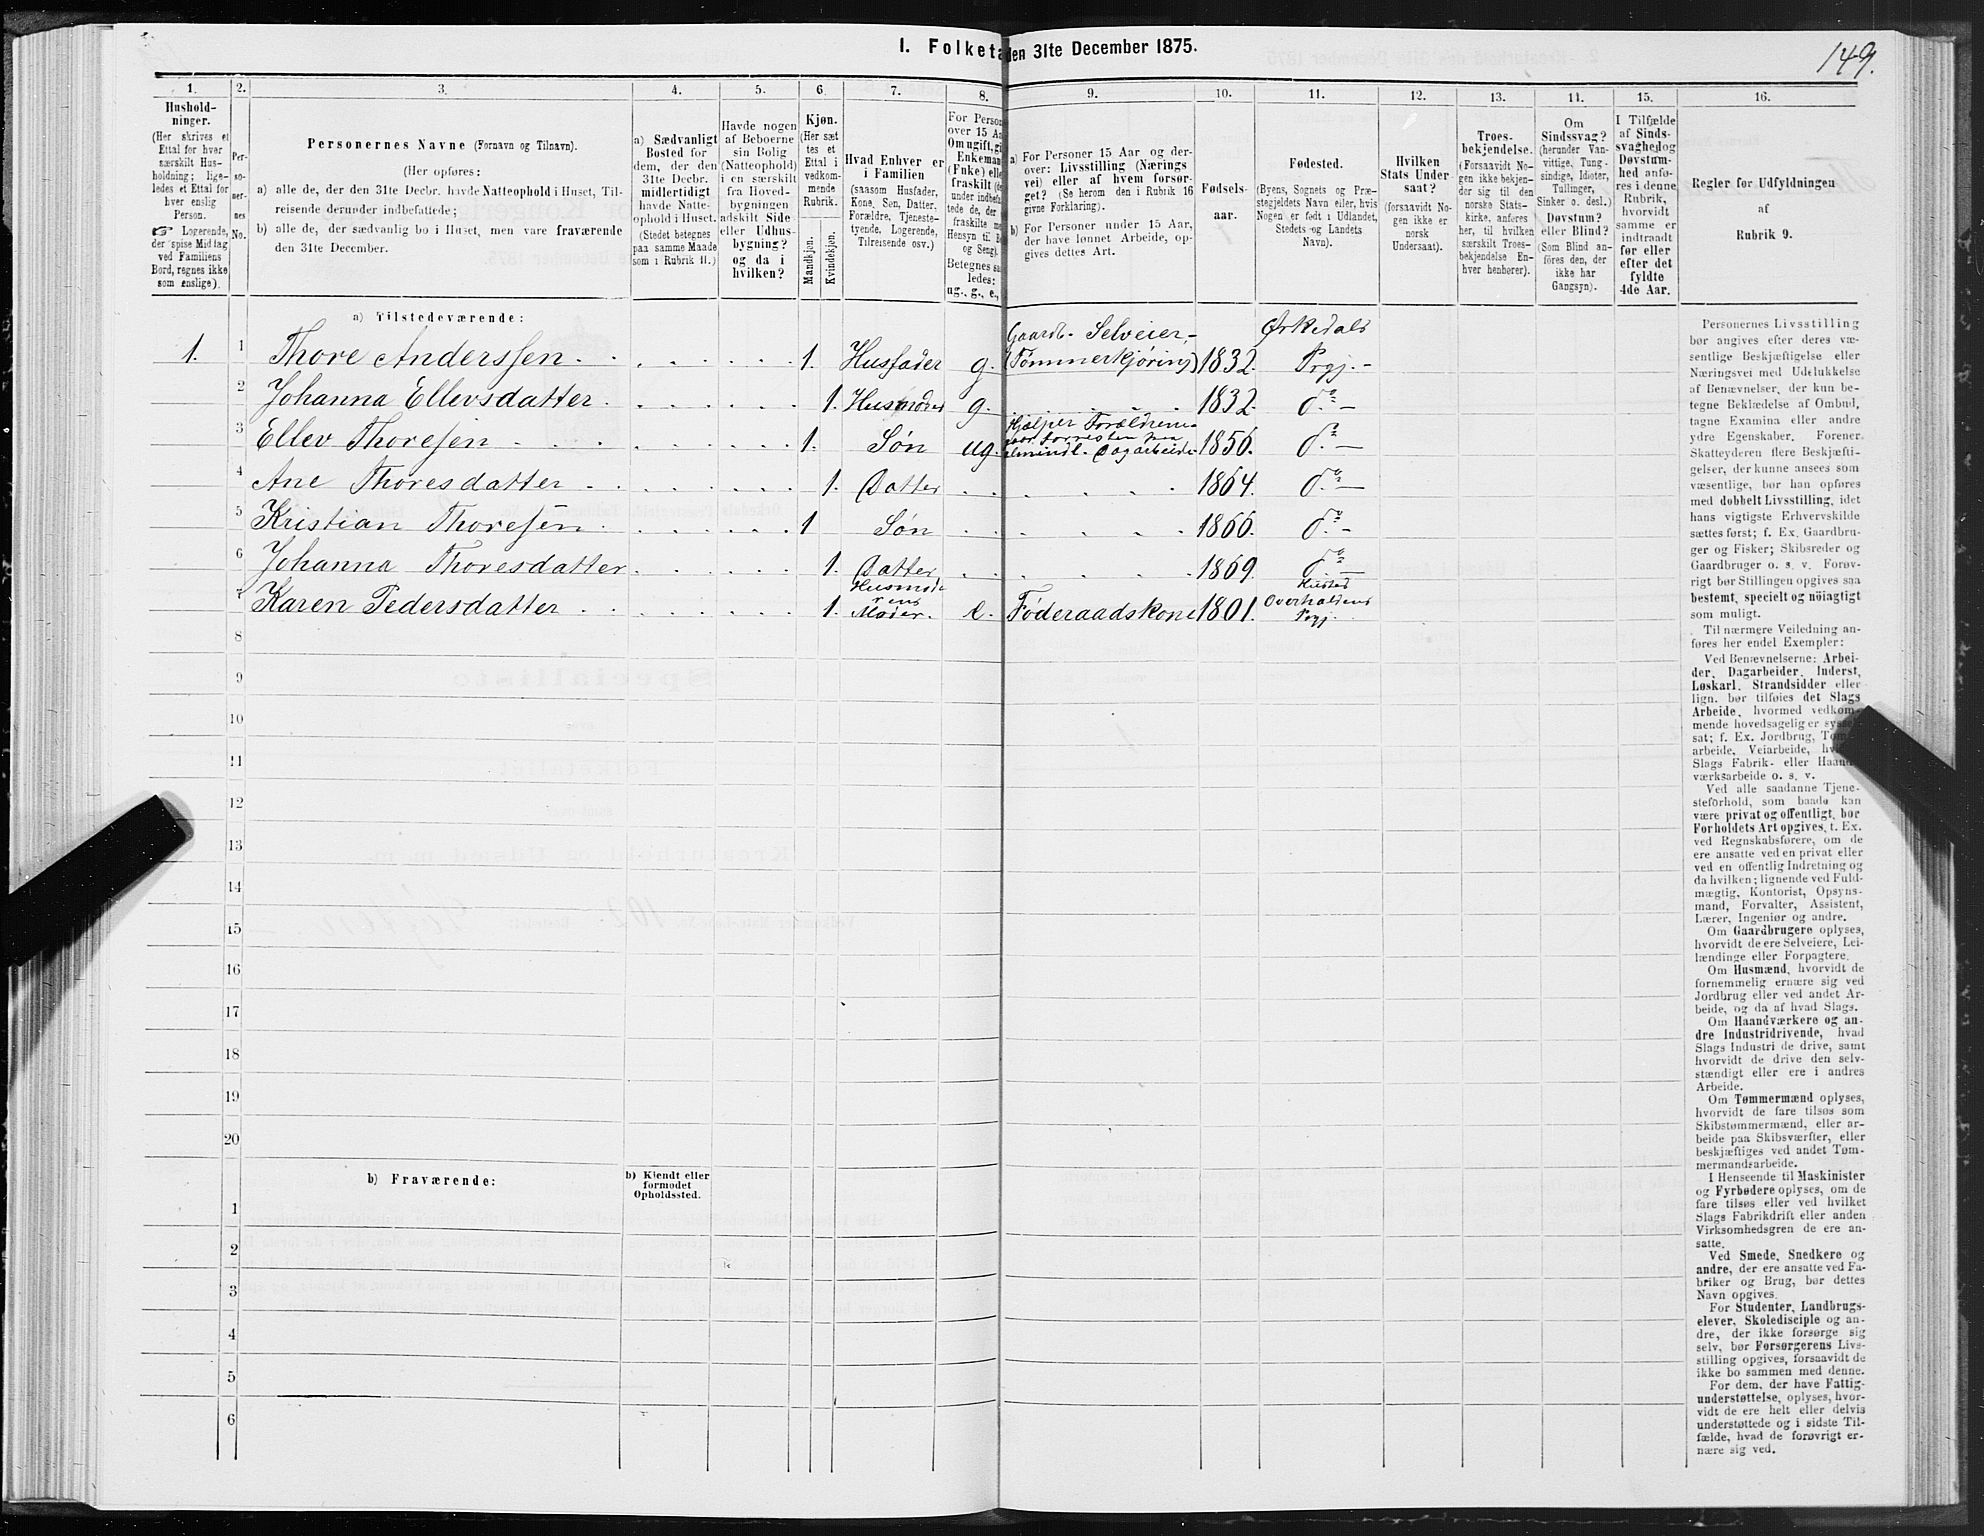 I. Folketa den 31te December 1875.
149.
1. 2. 3. 4. 5. 6. 7. 8. 9. 10. 11. 12. 13. 14. 15. 16.
Hushold-
ninger.
(Her skrives et
Ettal for hver
særskilt Hus-
holdning; lige-
ledes et Ettal for
hver enslig
Person.
☞ Logerende,
der spise Middag
ved Familiens
Bord, regnes ikke
som enslige).
Per-
so-
ner-
nes
No.
Personernes Navne (Fornavn og Tilnavn).
(Her opføres:
a) alle de, der den 31te Decbr. havde Natteophold i Huset, Til-
reisende derunder indbefattede;
b) alle de, der sædvanlig bo i Huset, men vare fraværende
den 31te December.
a) Sædvanligt
Bosted for
dem, der den
31te Decbr.
midlertidigt
havde Natte-
ophold i Huset.
(Stedet betegnes
paa samme Maade
som i Rubrik 11.)
Havde nogen
af Beboerne
sin Bolig
(Natteophold)
i en særskilt
fra Hoved-
bygningen
adskilt Side-
eller Udhus-
bygning?
og da i
hvilken?
Kjøn.
(Her sæt
tes et
Ettal i
vedkom-
mende
Rubrik.
Mandkjøn.
Kvindekjøn.
Hvad Enhver er
i Familien
(saasom Husfader,
Kone, Søn, Datter,
Forældre, Tjeneste-
tyende, Logerende,
Tilreisende osv.)
For Person
over 15 Aa
Om ugift, gi
Enkemand
(Enke) elle
fraskilt (de
under indbefa
tede de, de
fraskilte me
Hensyn til B
og Seng).
Betegnes sa
ledes:
ug., g., e.,
a) For Personer 15 Aar og der-
over: Livsstilling (Nærings
vei) eller af hvem forsør-
get? (Se herom den i Rubrik 16
givne Forklaring).
b) For Personer under 15 Aar,
der have lønnet Arbeide, op-
gives dettes Art.
Fødsels-
aar.
Fødested.
(Byens, Sognets og Præ-
stegjeldets Navn eller, hvis
Nogen er født i Udlandet,
Stedets og Landets
Navn).
Hvilken
Stats Under-
saat?
(forsaavidt No-
gen ikke er
norsk
Undersaat).
Troes-
bekjendelse.
(Forsaavidt No-
gen ikke bekjen-
der sig til den
norske Stats-
kirke, anføres
her, til hvilken
særskilt Troes-
bekjendelse En-
hver henhører).
Om
Sindssvag?
(herunder Van-
vittige, Tung-
sindige, Idioter,
Tullinger,
Sinker o. desl.)
Døvstum?
eller Blind?
(Som Blind an-
føres den, der
ikke har
Gangsyn).
I Tilfælde
af Sinds-
svaghed og
Døvstum-
hed anfø-
res i denne
Rubrik,
hvorvidt
samme er
indtraadt
før eller
efter det
fyldte
4de Aar.
Regler for Udfyldningen
af
Rubrik 9.
a) Tilstedeværende:
1. 1 Thore Anderssen 1. Husfader g. Gaardb. Selveier, (Tømmerkjøring) 1832. Ørkedals Prgj.
2 Johanna Ellevsdatter 1. Husmoder g. 1832. do
3 Ellev Thoresen 1. Søn ug. Hjælper Forældrene almindl. Dagarbeide 1856. do
4 Ane Thoresdatter 1. Datter 1864. do
5 Kristian Thoresen 1 Søn 1866. do
6 Johanna Thoresdatter 1. Datter 1869. do
7 Karen Pedersdatter 1. Husmoderens Moder. e. Føderaadskone 1801. Overhaldens Prgj.
8
9
10
11
12
13
14
15
16
17
18
19
20
b) Fraværende:
b) Kjendt eller
formodet
Opholdssted.
1
2
3
4
5
6
Personernes Livsstilling
bør angives efter deres væ-
sentlige Beskjæftigelse eller
Næringsvei med Udelukkelse
af Benævnelser, der kun be-
tegne Beklædelse af Ombud,
tagne Examina eller andre
ydre Egenskaber. Forener
Skatteyderen flere Beskjæfti-
gelser, der kunne ansees som
væsentlige, bør han opføres
med dobbelt Livsstilling, idet
hans vigtigste Erhvervskilde
sættes først; f. Ex. Gaardbru-
ger og Fisker; Skibsreder og
Gaardbruger o. s. v. Forøv-
rigt bør Stillingen opgives saa
bestemt, specielt og nöiagtigt
som muligt.
Til nærmere Veiledning an-
føres her endel Exempler:
Ved Benævnelserne: Arbei-
der, Dagarbeider, Inderst,
Løskarl, Strandsidder eller
lign. bør tilføies det Slags
Arbeide, hvormed vedkom-
mende hovedsagelig er syssel-
sat; f. Ex. Jordbrug, Tøm-
arbeide, Veiarbeide, hvilket
Slags Fabrik- eller Haand-
værksarbeide o. s. v.
Ved alle saadanne Tjene-
steforhold, som baade kan
være privat og offentligt, bør
Forholdets Art opgives, t. Ex.
ved Regnskabsførere, om de
ere ansatte ved en privat eller
ved en offentlig Indretning og
da hvilken; lignende ved Fuld-
mægtig, Kontorist, Opsyns-
mand, Forvalter, Assistent,
Lærer, Ingeniør og andre.
Om Gaardbrugere oplyses,
hvorvidt de ere Selveiere, Lei-
lændinge eller Forpagtere.
Om Husmænd, hvorvidt de
fornemmelig ernære sig ved
Jordbrug eller ved andet Ar-
beide, og da af hvad Slags.
Om Haandværkere og an-
dre Industridrivende, hvad
Slags Industri de drive, samt
hvorvidt de drive den selv-
stændigt eller ere i andres
Arbeide.
Om Tømmermænd oplyses,
hvorvidt de fare tilsøs som
Skibstømmermænd, eller ar-
beide paa Skibsværfter, eller
beskjæftiges ved andet Tøm-
mermandsarbeide.
I Henseende til Maskinister
og Fyrbødere oplyses, om de
fare tilsøs eller ved hvilket
Slags Fabrikdrift eller anden
Virksomhedsgren de ere an-
satte.
Ved Smede, Snedkere og
andre, der ere ansatte ved Fa-
briker og Brug, bør dettes
Navn opgives.
For Studenter, Landbrugs-
elever, Skoledisciple og an-
dre, der ikke forsørge sig
selv, bør Forsørgerens Livs-
stilling opgives, forsaavidt de
ikke bo sammen med denne.
For dem, der have Fattig-
understøttelse, oplyses, hvor-
vidt de ere helt eller delvis
understøttede og i sidste Til-
fælde, hvad de forøvrigt er-
nære sig ved.